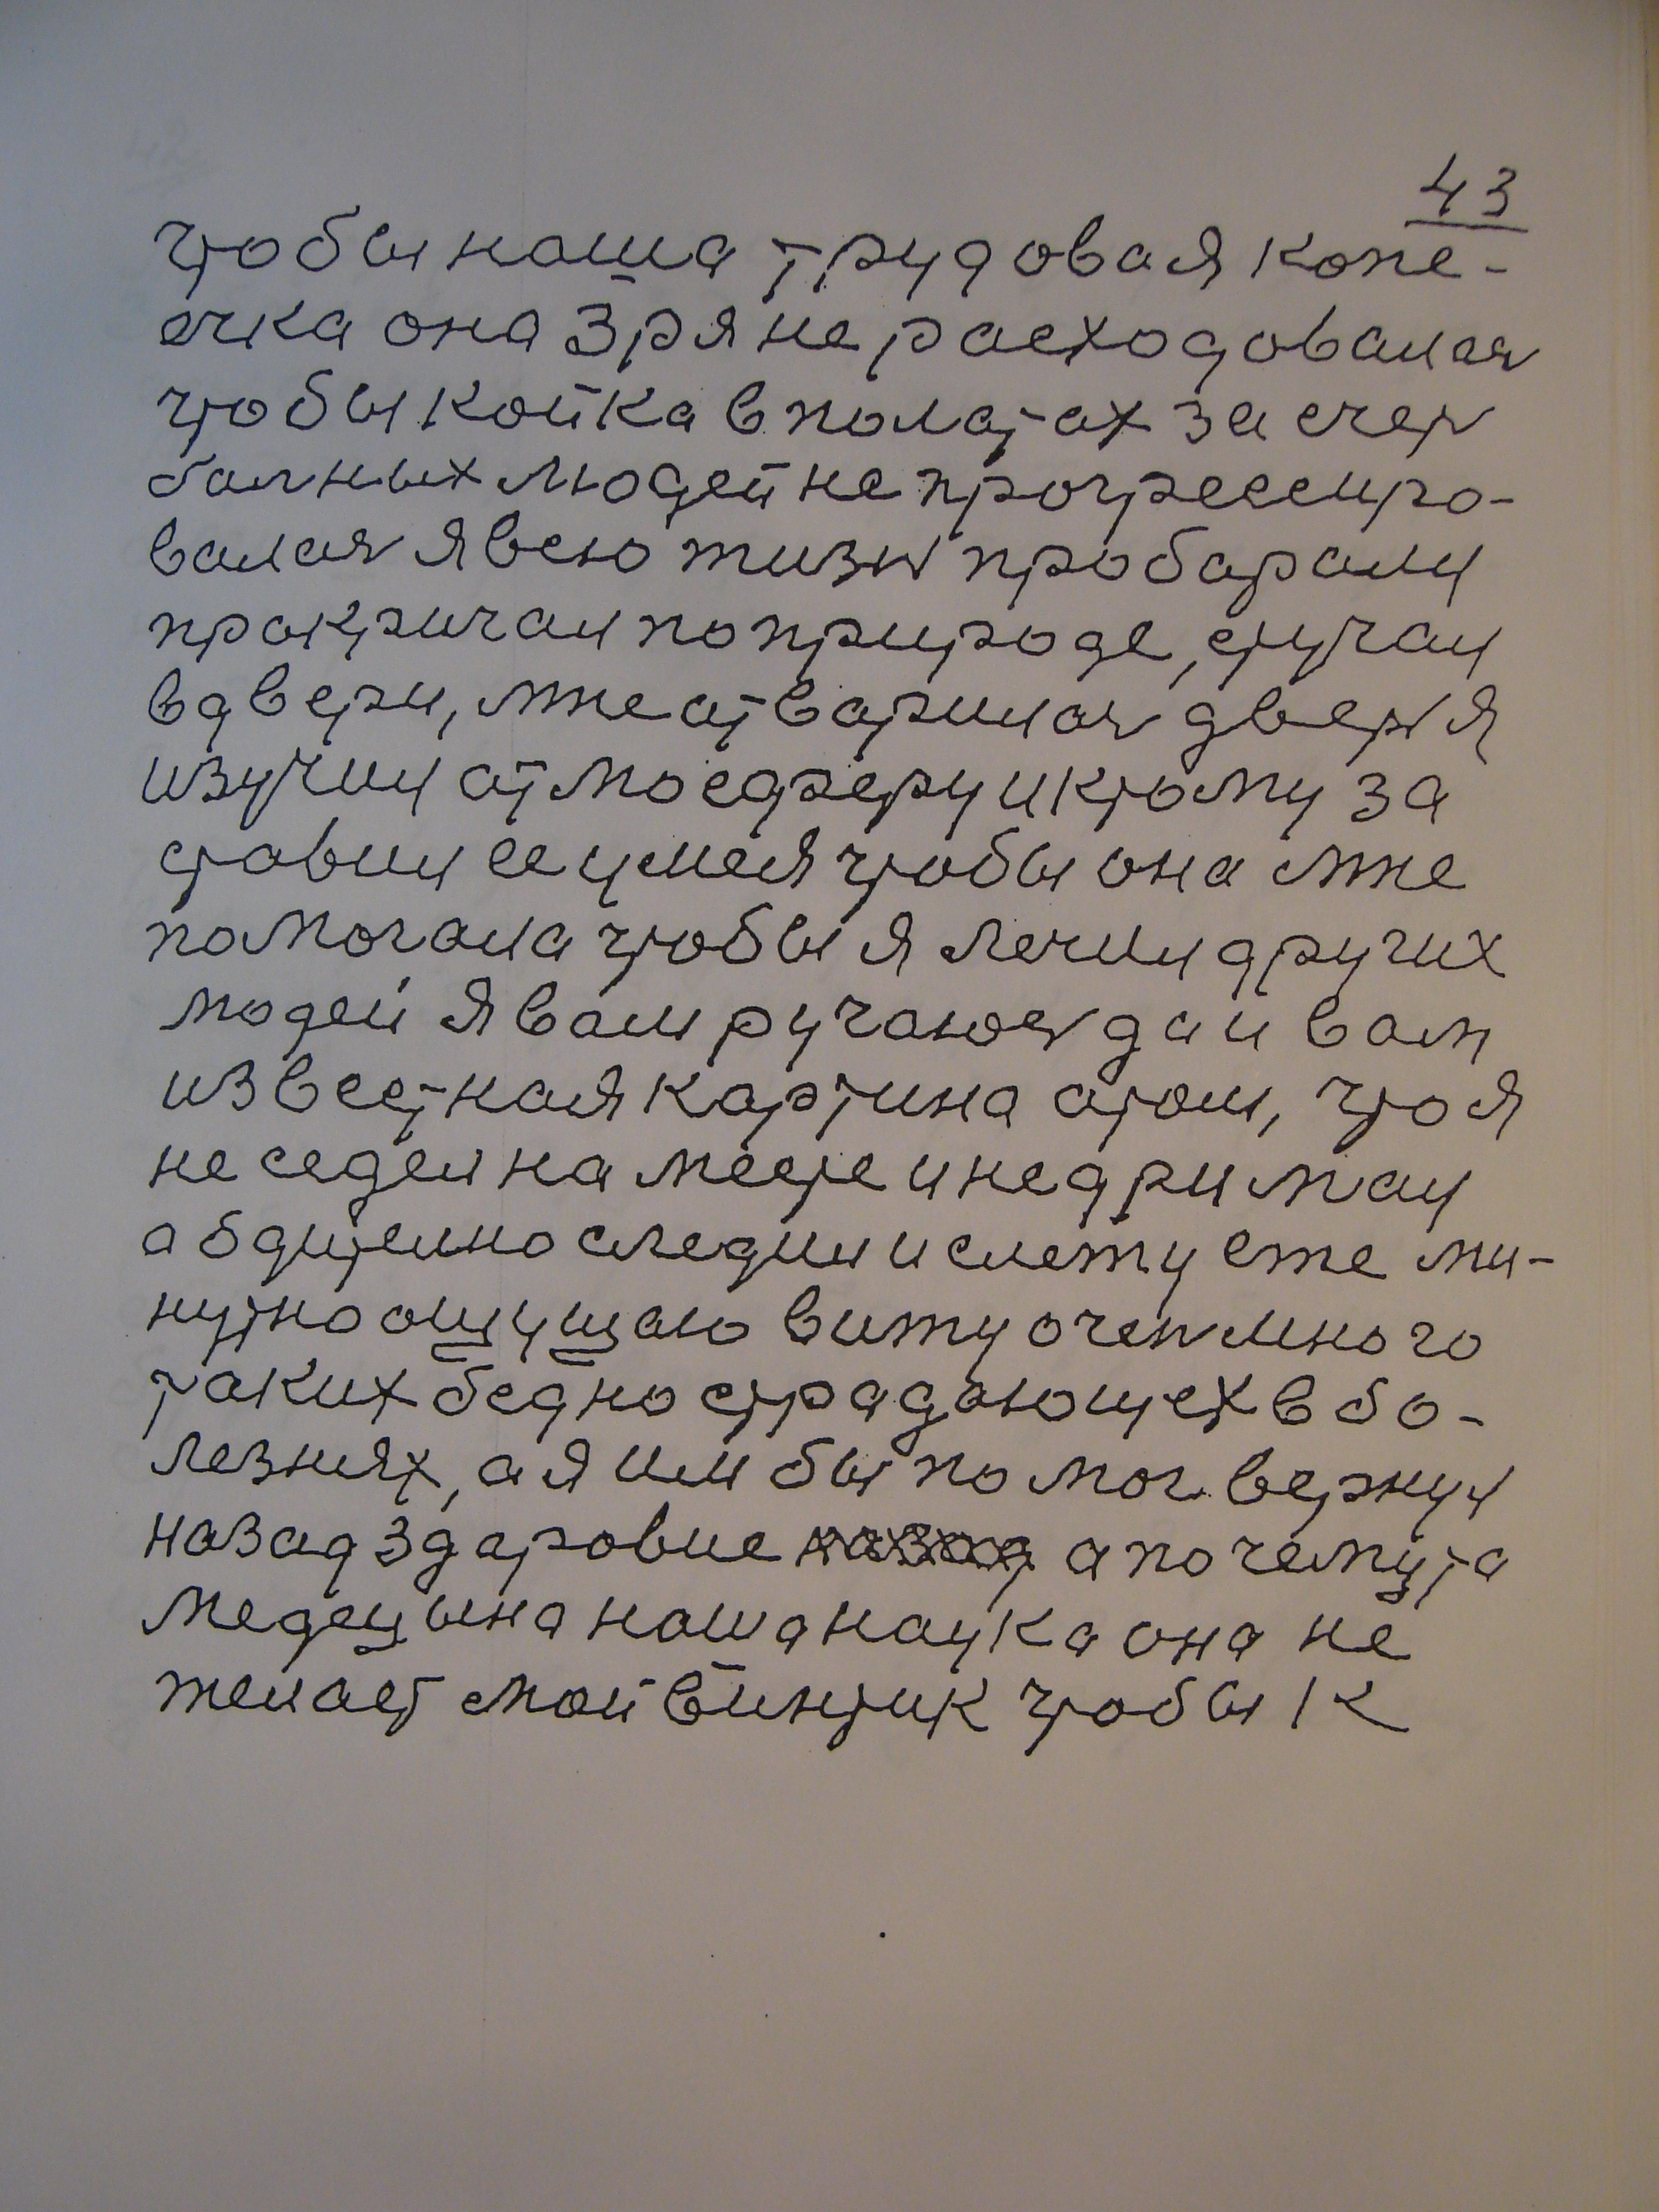 43
чтобы наша трудовая копе-
ечка она зря не расходовалась
чтобы койка в полатах за счет
больных людей не прогрессиро-
валась я всю жизнь пробарал и
пракричал по природе, стучал
в двери, мне атварилась дверь я
изучил атмосферу и к тому за
ставил ее умея чтобы она мне
памогала чтобы я лечил других
людей я вам ручаюсь да и вам
известная картина атом, что я
не седел на месте и не дримал
а бдително следил и слежу еже ми-
нутно ощущаю вижу очень много
таких бедно страдающех в бо-
лезнях, а я им бы помог вернул
назад здаровие а почему та
медецына наша наука она не
желает мой винтик чтобы к